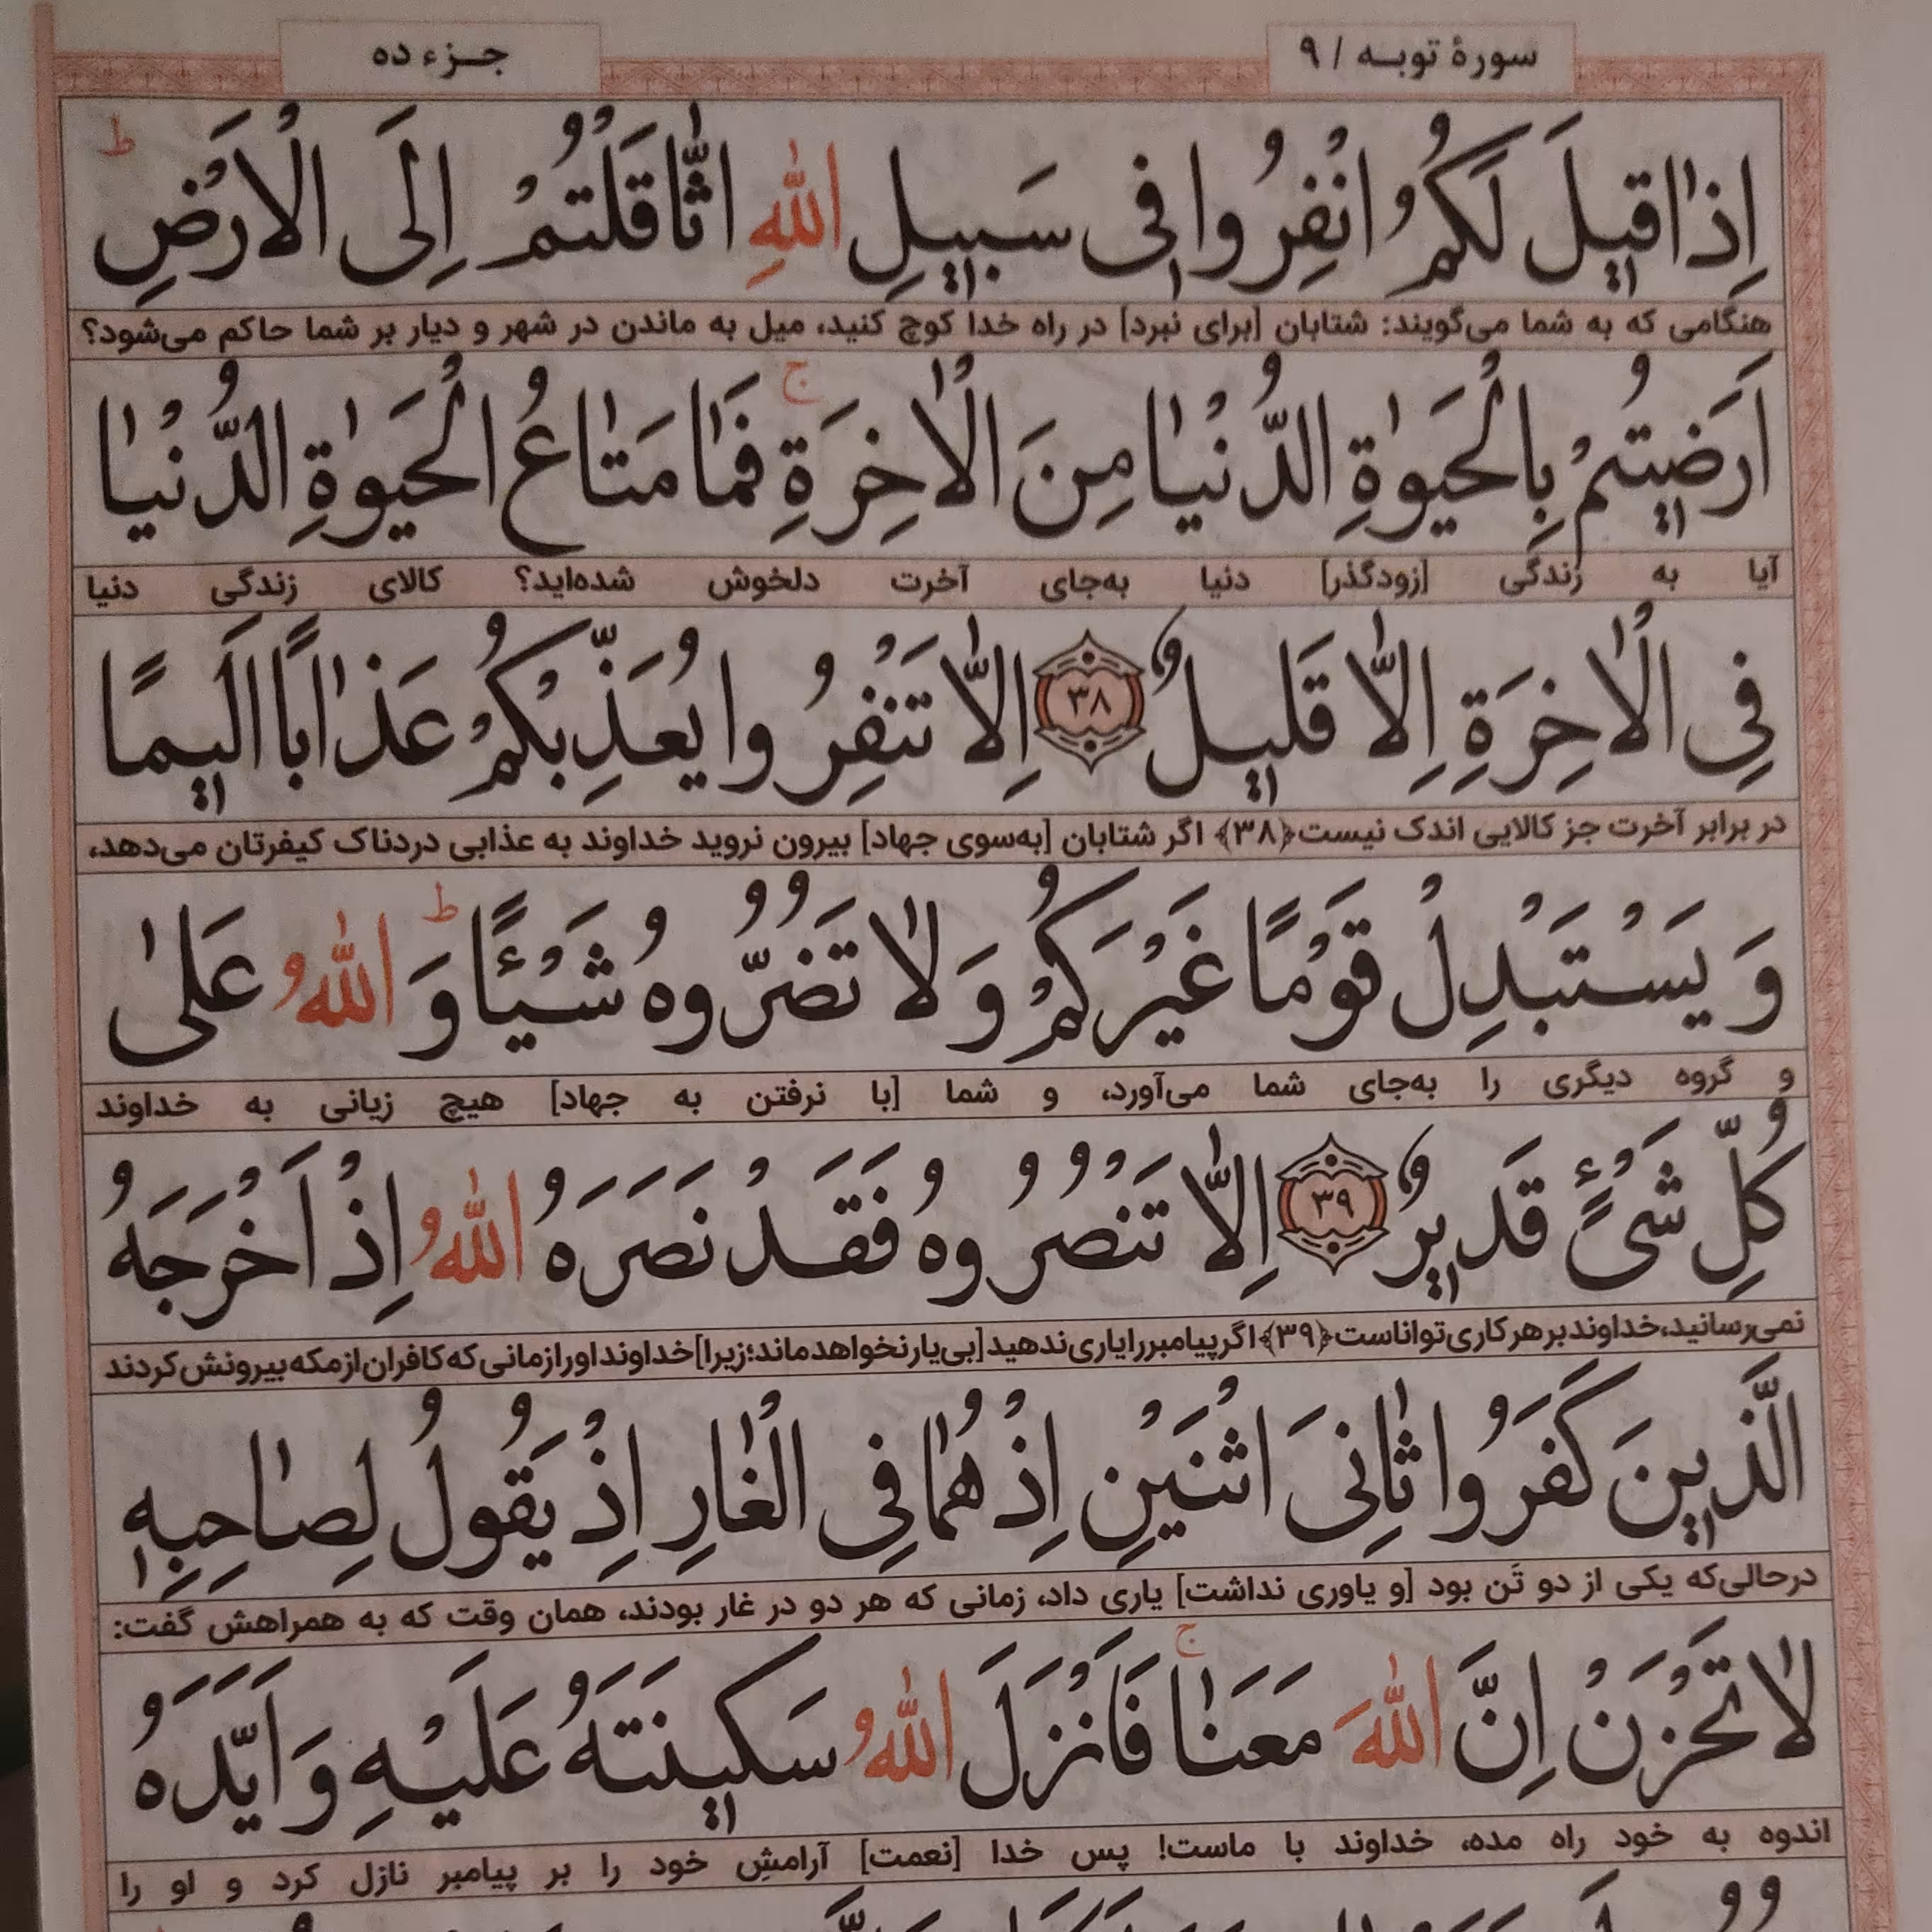 سورهٔ توبه / ۹
جزء ده
اِذٰا قیٖلَ لَكُمُ انْفِرُوا فیٖ سَبیٖلِ اللّٰهِ اثّٰاقَلْتُمْ اِلَى الْاَرْضِ ط
هنگامی که به شما می‌گویند: شتابان [برای نبرد] در راه خدا کوچ کنید، میل به ماندن در شهر و دیار بر شما حاکم می‌شود؟
اَرَضیٖتُمْ بِالْحَیٰوةِ الدُّنْیٰا مِنَ الْاٰخِرَةِ ج فَمٰا مَتٰاعُ الْحَیٰوةِ الدُّنْیٰا
آیا به زندگی [زودگذر] دنیا به‌جای آخرت دلخوش شده‌اید؟ کالای زندگی دنیا
فِی الْاٰخِرَةِ اِلّٰا قَلیٖلٌ ﴿۳۸﴾ اِلّٰا تَنْفِرُوا یُعَذِّبْكُمْ عَذٰابًا اَلیٖمًا
در برابر آخرت جز کالایی اندک نیست﴿۳۸﴾ اگر شتابان [به‌سوی جهاد] بیرون نروید خداوند به عذابی دردناک کیفرتان می‌دهد،
وَ یَسْتَبْدِلْ قَوْمًا غَیْرَكُمْ وَ لٰا تَضُرُّوهُ شَیْئًا ط وَ اللّٰهُ عَلىٰ
و گروه دیگری را به‌جای شما می‌آورد، و شما [با نرفتن به جهاد] هیچ زیانی به خداوند
كُلِّ شَیْءٍ قَدیٖرٌ ﴿۳۹﴾ اِلّٰا تَنْصُرُوهُ فَقَدْ نَصَرَهُ اللّٰهُ اِذْ اَخْرَجَهُ
نمی‌رسانید، خداوند بر هر کاری تواناست﴿۳۹﴾ اگر پیامبر را یاری ندهید [بی‌یار نخواهد ماند؛ زیرا] خداوند او را زمانی که کافران از مکه بیرونش کردند
الَّذیٖنَ كَفَرُوا ثٰانِیَ اثْنَیْنِ اِذْ هُمٰا فِی الْغٰارِ اِذْ یَقُولُ لِصٰاحِبِهٖ
درحالی‌که یکی از دو تَن بود [و یاوری نداشت] یاری داد، زمانی که هر دو در غار بودند، همان وقت که به همراهش گفت:
لٰا تَحْزَنْ اِنَّ اللّٰهَ مَعَنٰا ج فَاَنْزَلَ اللّٰهُ سَكیٖنَتَهُ عَلَیْهِ وَ اَیَّدَهُ
اندوه به خود راه مده، خداوند با ماست! پس خدا [نعمت] آرامشِ خود را بر پیامبر نازل کرد و او را